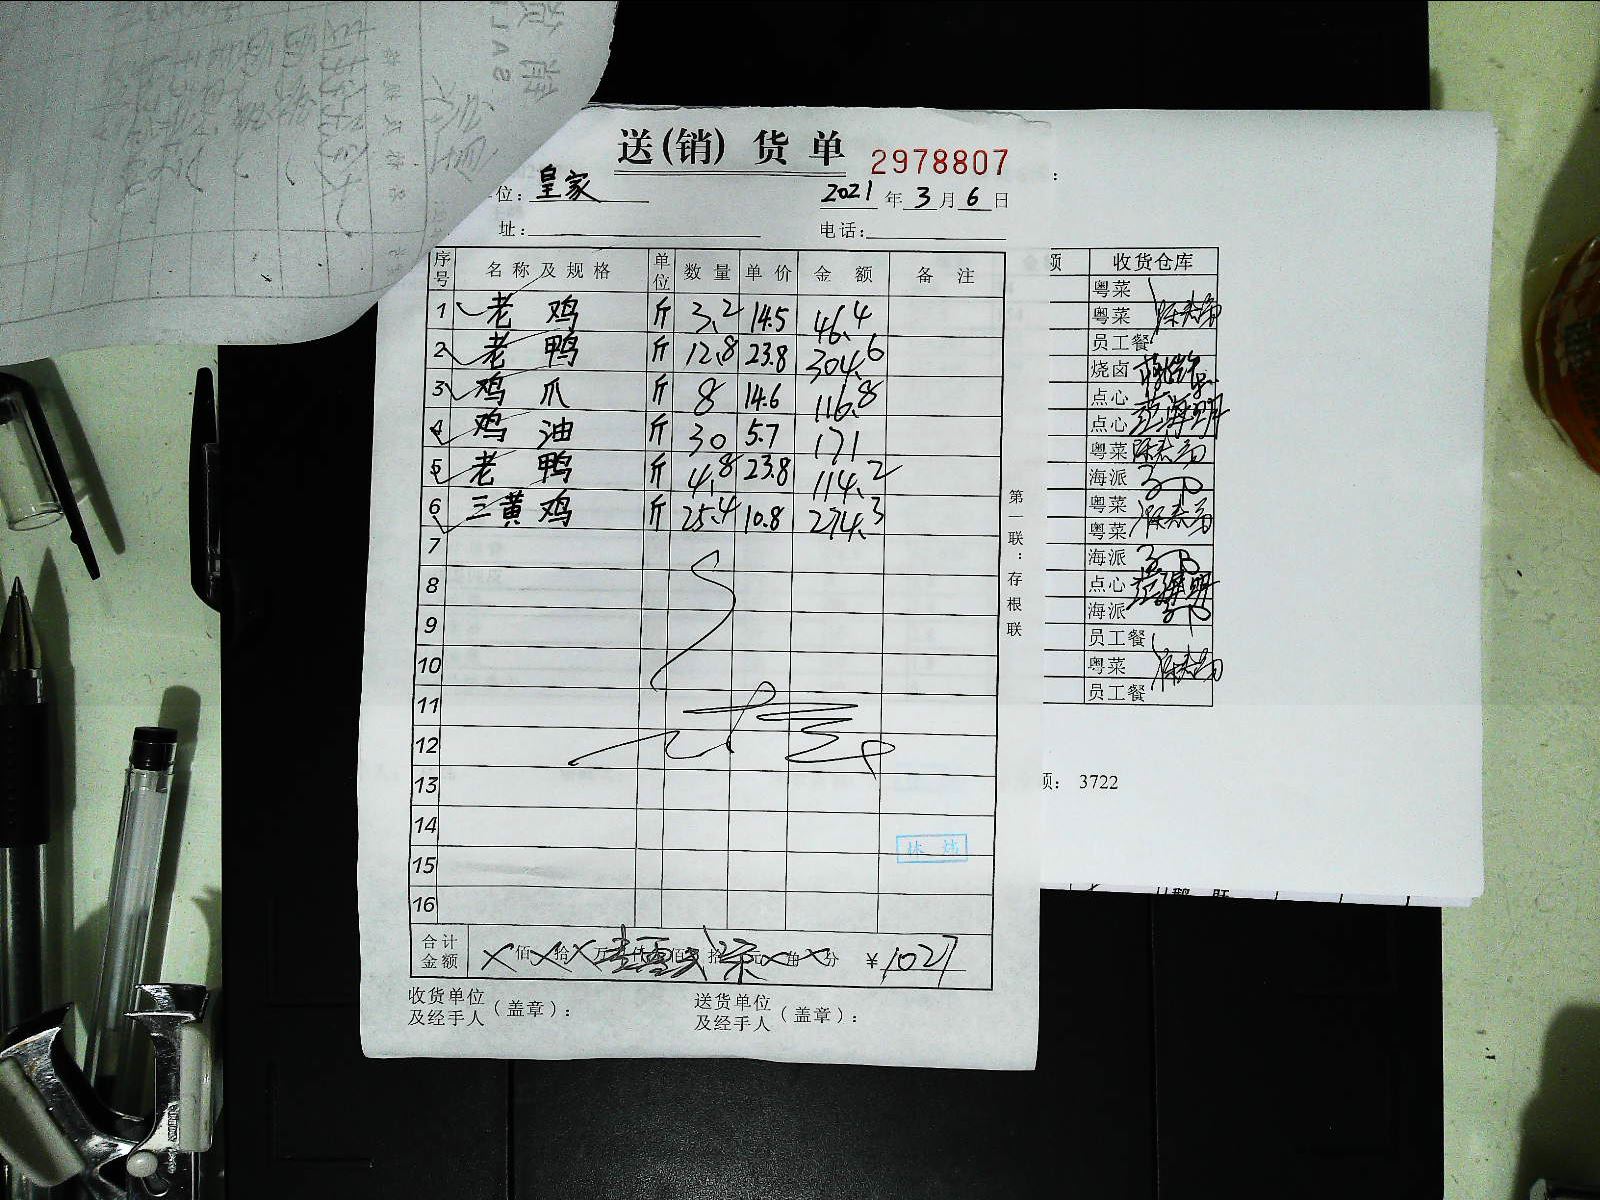 送(销)货单 2978807
位: 皇家 2021年3月6日
址: 电话:
序号 名称及规格 单位 数量 单价 金额 备注
1 老鸡 斤 3.2 14.5 46.4
2 老鸭 斤 12.8 23.8 304.6
3 鸡爪 斤 8 14.6 116.8
4 鸡油 斤 30 5.7 171
5 老鸭 斤 4.8 23.8 114.2
6 三黄鸡 斤 25.4 10.8 274.3
7
8
9
10
11
12
13
14
15
16
合计金额 佰 拾 万 仟 佰 拾 元 角 分 ¥1027
收货单位及经手人(盖章): 送货单位及经手人(盖章):
第一联:存根联
额 收货仓库
粤菜
粤菜
员工餐
烧卤
点心
点心
粤菜
海派
粤菜
粤菜
海派
点心
海派
员工餐
粤菜
员工餐
3722